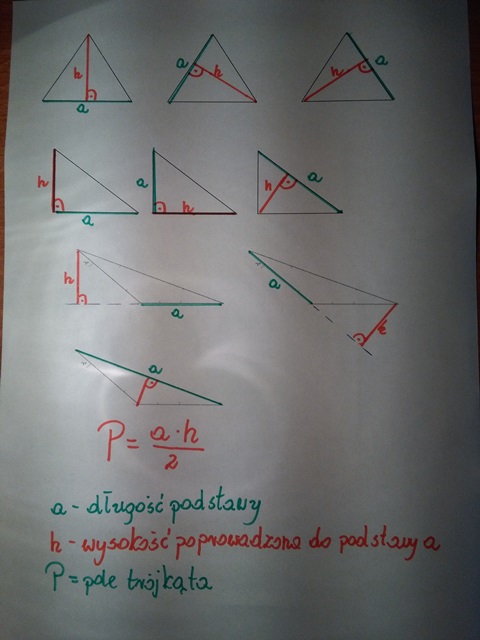 h
a
a
h
h
a
h
a
a
h
h
a
h
a
a
h
a
P = a·h
2
a - długość podstawy
h - wysokość poprowadzona do podstawy a
P = pole trójkąta